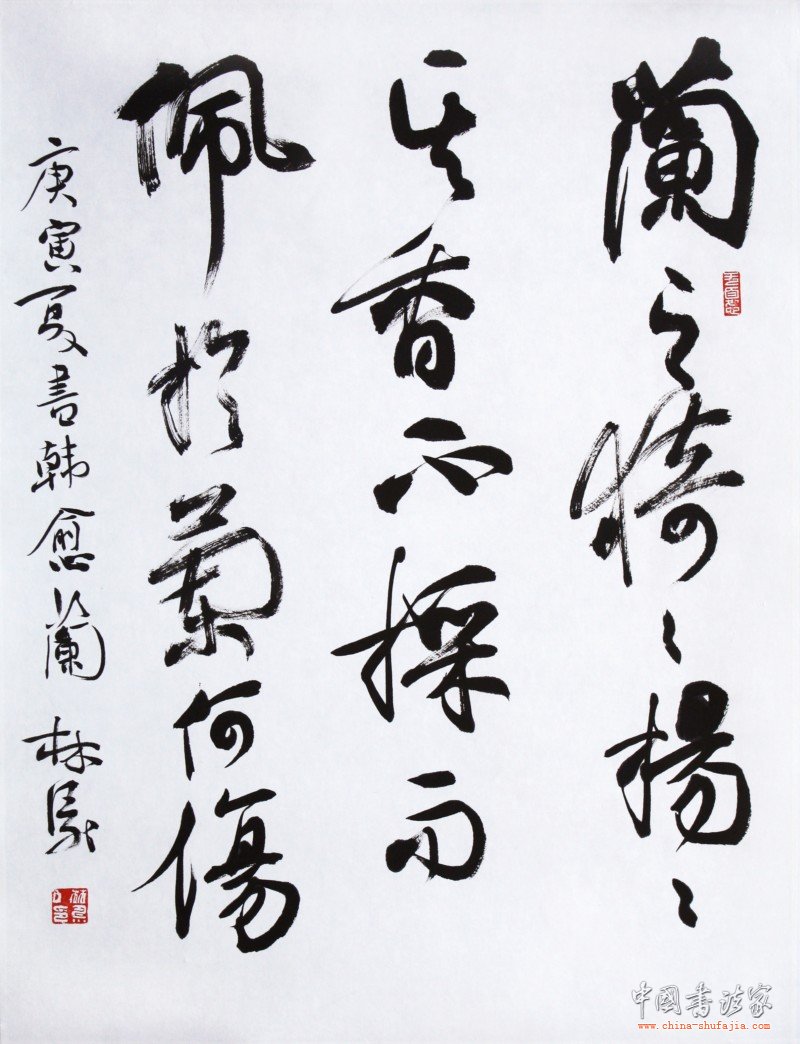 蘭之猗〻揚〻
其香不採而
佩於蘭何傷
庚寅夏書韓愈蘭 林
中國书法家
www.china-shufajia.com